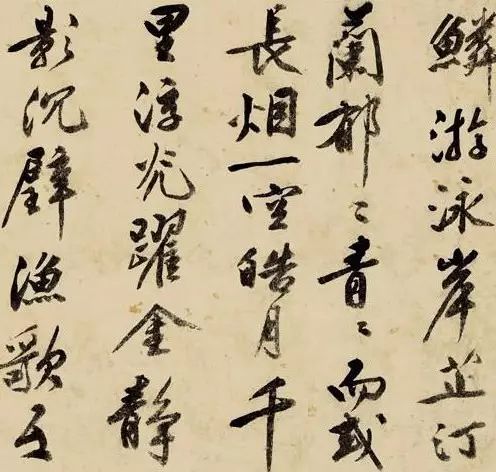 鳞游泳岸芷汀
蘭郁〻青〻而或
長烟一空皓月千
里浮光躍金静
影沉璧漁歌互